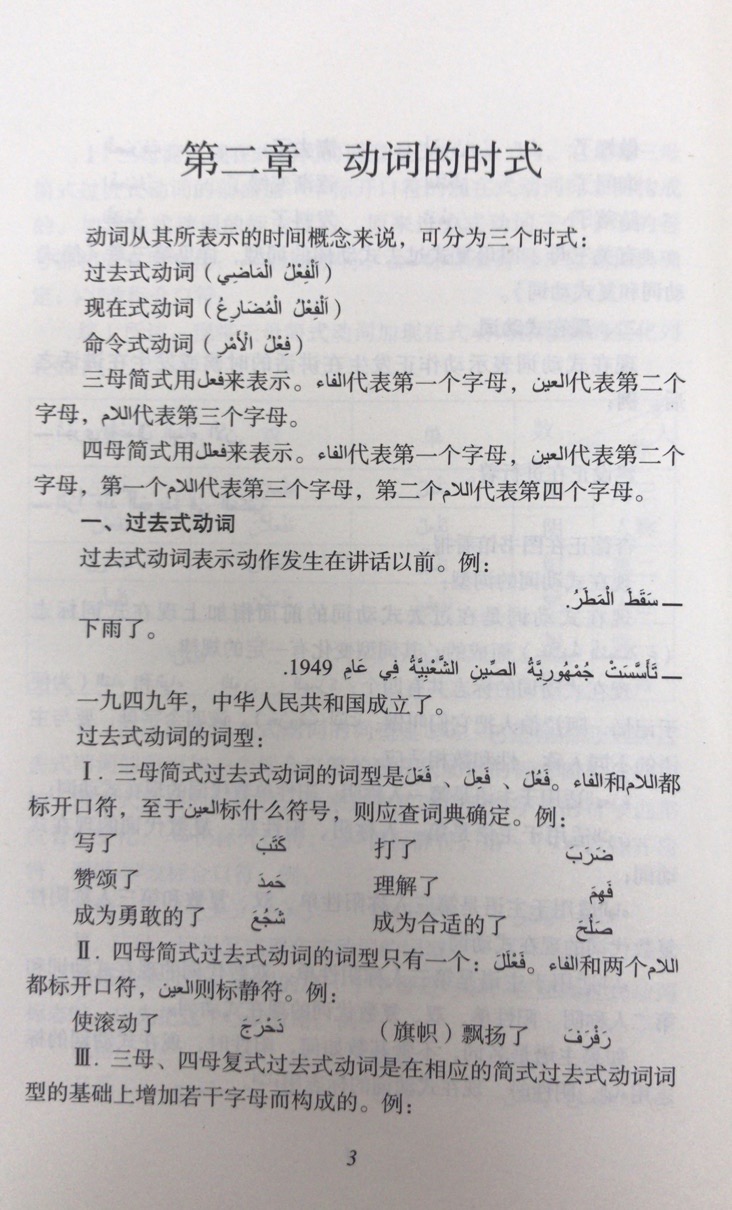 第二章　动词的时式
动词从其所表示的时间概念来说，可分为三个时式：
过去式动词（اَلْفِعْلُ الْمَاضِي）
现在式动词（اَلْفِعْلُ الْمُضَارِعُ）
命令式动词（فِعْلُ الْأَمْرِ）
三母简式用فعل来表示。الفاء代表第一个字母，العين代表第二个
字母，اللام代表第三个字母。
四母简式用فعلل来表示。الفاء代表第一个字母，العين代表第二个
字母，第一个اللام代表第三个字母，第二个اللام代表第四个字母。
一、过去式动词
过去式动词表示动作发生在讲话以前。例：
ـــ سَقَطَ الْمَطَرُ.
下雨了。
ـــ تَأَسَّسَتْ جُمْهُورِيَّةُ الصِّينِ الشَّعْبِيَّةُ فِي عَامِ 1949.
一九四九年，中华人民共和国成立了。
过去式动词的词型：
Ⅰ．三母简式过去式动词的词型是فَعَلَ 、فَعِلَ 、فَعُلَ。الفاء和اللام都
标开口符，至于العين标什么符号，则应查词典确定。例：
写了 كَتَبَ 打了 ضَرَبَ
赞颂了 حَمِدَ 理解了 فَهِمَ
成为勇敢的了 شَجُعَ 成为合适的了 صَلُحَ
Ⅱ．四母简式过去式动词的词型只有一个：فَعْلَلَ。الفاء和两个اللام
都标开口符，العين则标静符。例：
使滚动了 دَحْرَجَ （旗帜）飘扬了 رَفْرَفَ
Ⅲ．三母、四母复式过去式动词是在相应的简式过去式动词词
型的基础上增加若干字母而构成的。例：
3